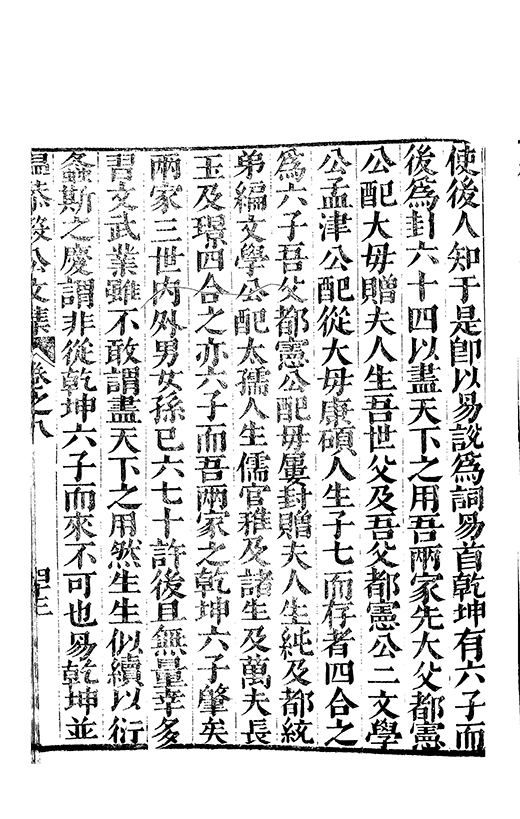 使後人知于是卽以易說為詞易首乾坤有六子而
後為封六十四以盡天下之用吾兩家先大父都憲
公配大毋贈夫人生吾世父及吾父都憲公二文學
公孟津公配從大毋康碩人生子七而存者四合之
為六子吾父都憲公配毋屢封贈夫人生純及都統
弟編文學公配太孺人生儒官稚及諸生及萬夫長
玉及璟四合之亦六子而吾兩家之乾坤六子肇矣
兩家三世內外男女孫已六七十許後且無量幸多
習文武業雖不敢謂盡天下之用然生生似續以衍
螽斯之慶謂非從乾坤六子而來不可也易乾坤並
溫恭毅公文集 卷之八 四十三